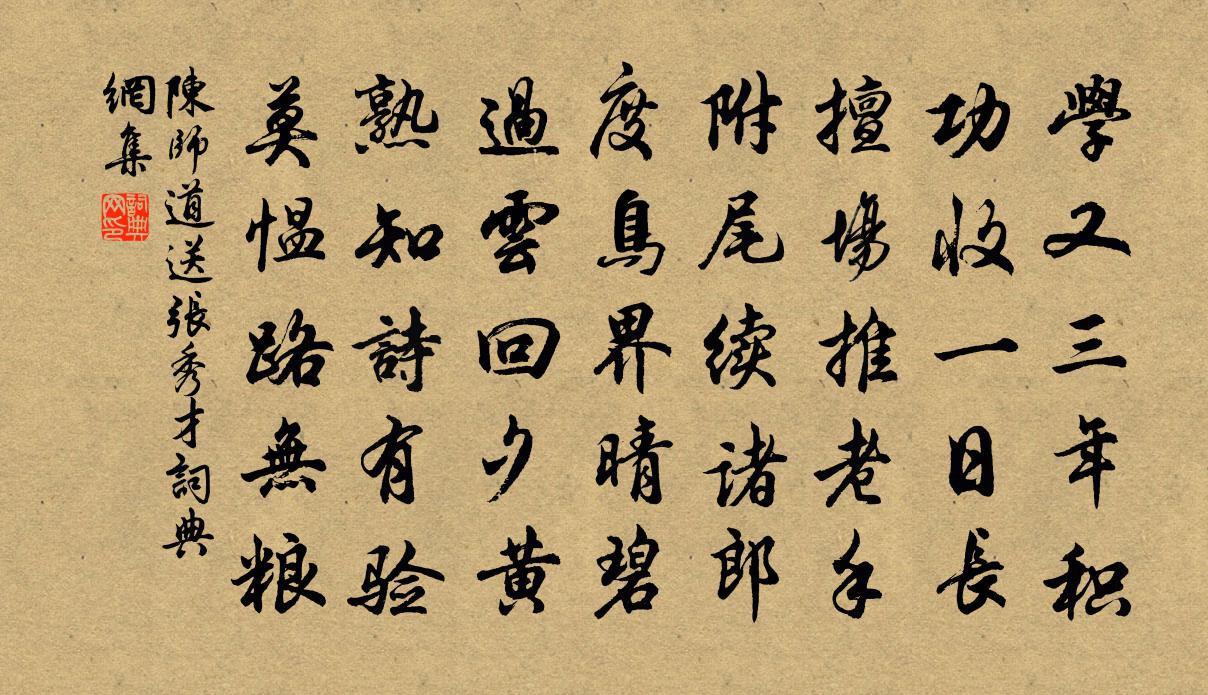 學又三年积
功收一日長
擅場推老手
附尾续诸郎
度鳥界晴碧
過雲回夕黄
熟知詩有验
莫愠路無粮
陳師道送張秀才詞典
網集
詞典
网印